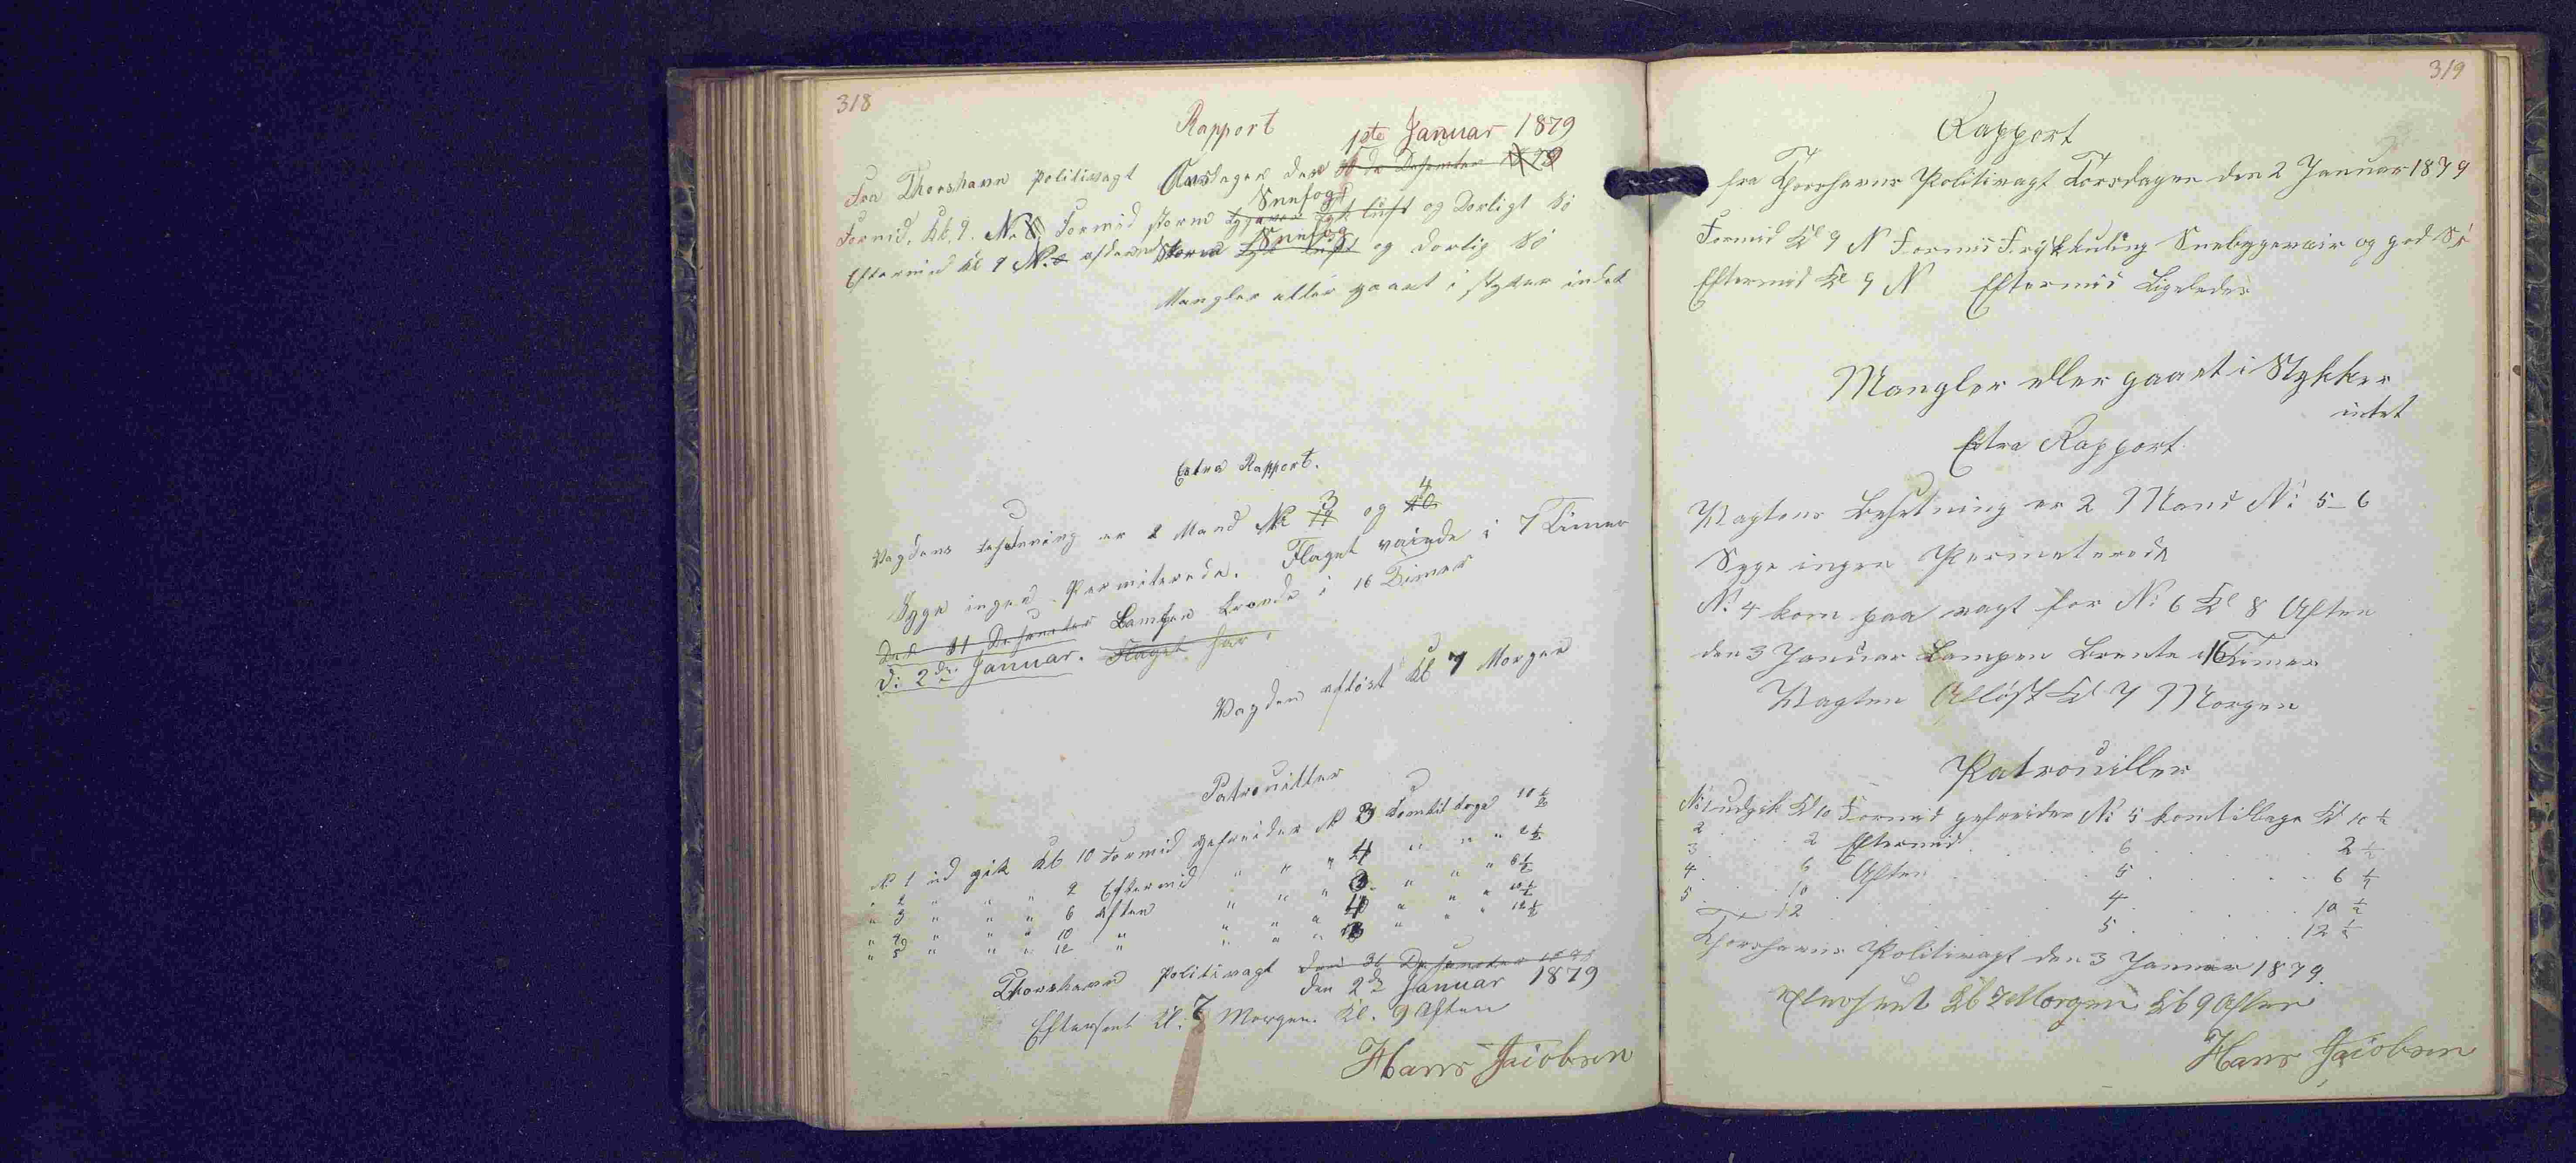 318
Rapport
1ste Januar 1879
Fra Thorshavn Politivagt Onsdagen den 30 de Desember 1878
Snefog
Formid. Kl. 9. N. O. Formid storm tyk luft og Dorligt Sö
Snefog
Eftermid Kl 9 N. O efdermid Storm tyk luft og dorlig Sö
Mangler eller gaaet i styker indet
Extra Rapport.
3 4
Vagdens besetning er 2 Mand No og
Syge ingen Permiterede. Flaget vaiede i 7 Timer
Den 31 Desember Lampen brende i 16 Timer
D: 2den Januar. Flaget har
Vagden aflöst Kl 7 Morgen
Patrouiller
No 1 ud gik Kl 10 Formid gefreider No 3 komtilbage 10 ½
" 2 " " " 2 Eftermid " " " 4 " " " 2 ½
" 3 " " " 6 Aften " " " 3 " " " 6 ½
" 4 " " " 10 " " " " 4 " " " 10 ½
" 5 " " " 12 " " " " 3 " " " 12 ½
Thorshavn Politivagt den 31 Desember 1878
den 2de Januar 1879
Efterseet Kl. 7 Morgen. Kl. 9 Aften
Hans Jacobsen
319
Rapport
fra Thorshavns Politivagt Torsdagen den 2 Januar 1879
Formid Kl 9 N Formid Friskkuling Snebygevair og god Sö
Eftermid Kl 9 N Eftermid Ligeledes
Mangler eller gaaet i Stykker
intet
Extra Rapport
Vagtens Besetning er 2 Mand No 5-6
Syge ingen Permeterede
No 4 kom paa vagt for No 6 Kl 8 Aften
den 3 Januar Lampen Brente i 16 Timer
Vagten Aflöst Kl 7 Morgen
Patrouiller
No 1 udgik Kl 10 Formid gefreider No 5 komtilbage Kl 10 ½
2 . . 2 Eftermid . . 6 . . 2 ½
3 . . 6 Aften . . 5 . . 6 ½
4 . . 10 . . 4 . . 10 ½
5 . . 12 . . 5 . . 12 ½
Thorshavns Politivagt den 3 Januar 1879.
Efterseet Kl 7 Morgen Kl 9 Aften
Hans Jacobsen